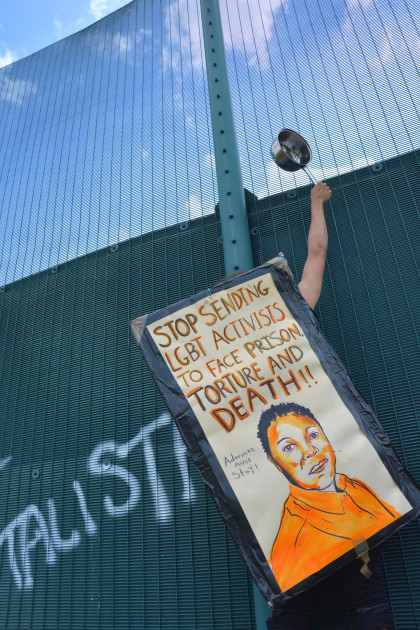 STOP SENDING
LGBT ACTIVISTS
TO FACE PRISON,
TORTURE AND
DEATH!!
Aderonke
must
Stay!
TALIST